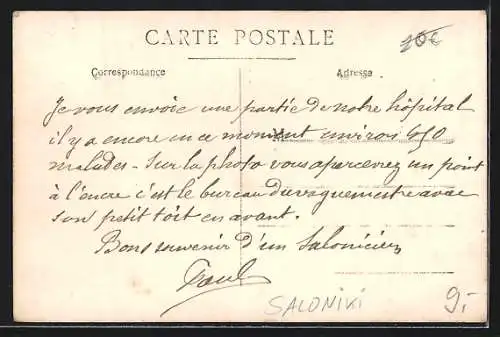 CARTE POSTALE
10€
Correspondance
Adresse
Je vous envoie une partie de notre hôpital
il y a encore en ce moment environ 450
malades - Sur la photo vous apercevrez un point
à l'encre c'est le bureau du vaguemestre avec
son petit toit en avant.
Bons souvenir d'un Salonicien
Paul
SALONIKI
9,-